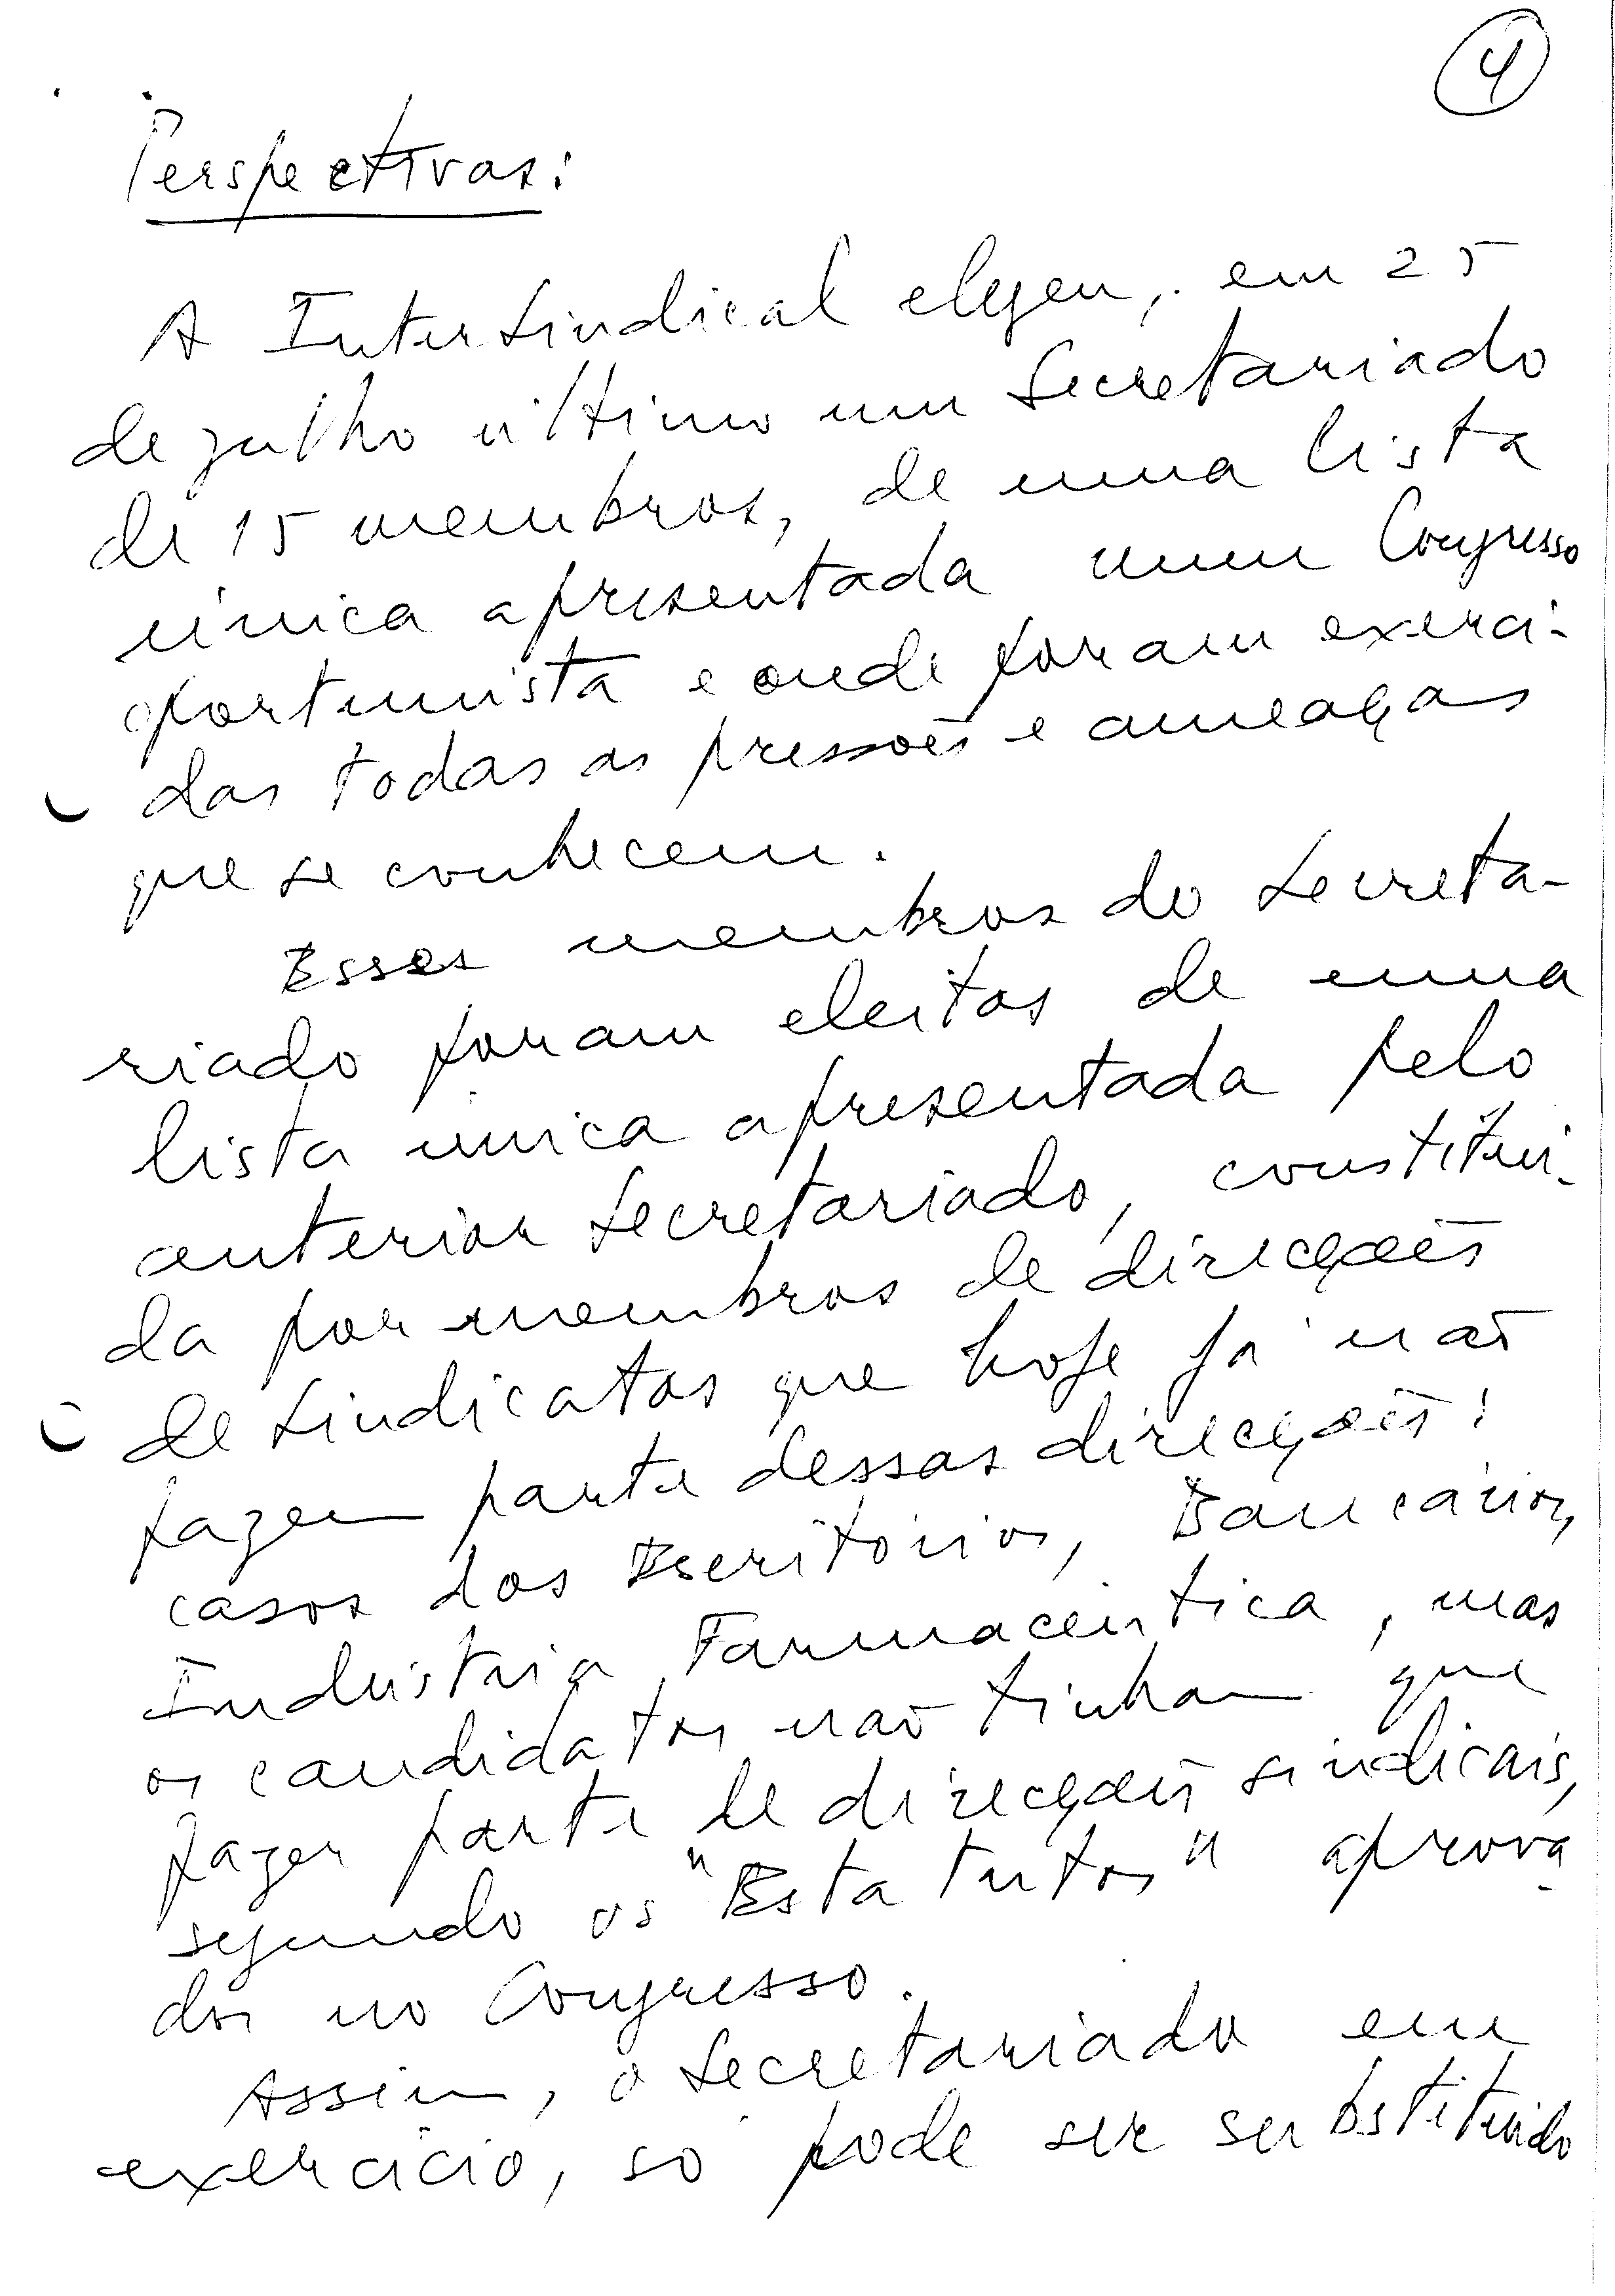 4
Perspectivas:
A Intersindical elegeu, em 25
de julho último um Secretariado
de 15 membros, de uma lista
única apresentada num Congresso
oportunista e onde foram exerci-
das todas as pressões e ameaças
que se conhecem.
Esses membros do Secreta-
riado foram eleitos de uma
lista única apresentada pelo
anterior Secretariado, constitui-
da por membros de direcções
de Sindicatos que hoje já não
fazem parte dessas direcções:
casos dos Escritórios, Bancários,
Indústria Farmacêutica, mas
os candidatos não tinham que
fazer parte de direcções sindicais,
segundo os "Estatutos" aprova-
dos no Congresso.
Assim, o Secretariado em
exercício, só pode ser substituido